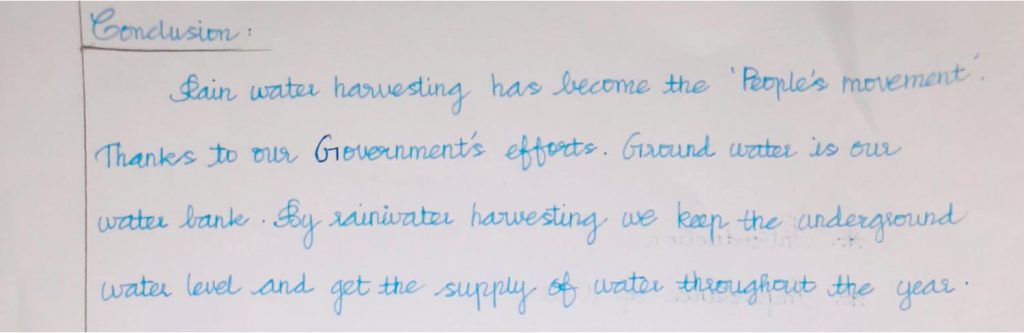 Conclusion:
Rain water harvesting has become the 'People's movement'.
Thanks to our Government's efforts. Ground water is our
water bank. By rainwater harvesting we keep the underground
water level and get the supply of water throughout the year.